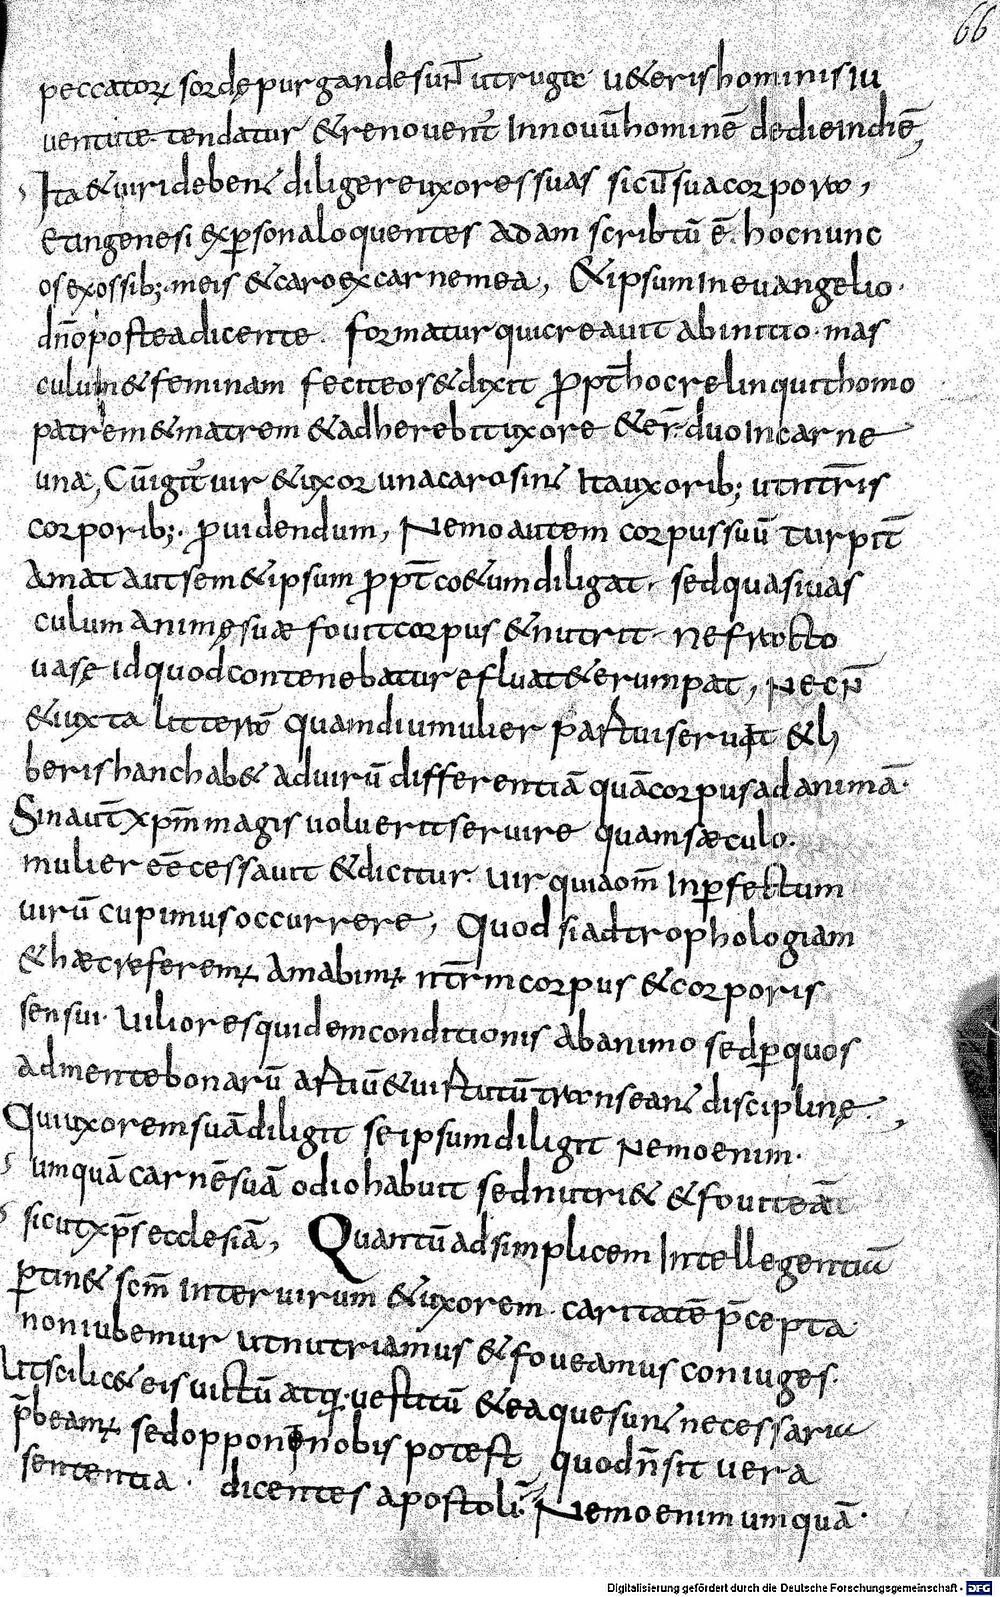 66
peccatoꝝ sordę purgande sunt ut rugæ u&eris hominis iu
uentute tendatur &renouent̄ In nouū hominē de die In diē,
Ita &uiri deben̄ diligere uxores suas sicut̄ sua corpora,
Et in genesi ex ꝑsona loquentes adam scribtū ē. hoc nunc
os ex ossib; meis &caro ex carne mea, &ipsum In euangelio.
dn̄o postea dicente. formatur qui creauit ab initio. mas
culum &feminam fecit eos &dixit ꝓpt̄ hoc relinquit homo
patrem &matrem &adherebit uxore &er̄ duo In carne
una, Cū igit̄ uir &uxor una caro sin̄ Ita uxorib; ut nr̄is
corporib;. ꝓuidendum, Nemo autem corpus suū turpit̄
amat aut sem&ipsum ꝓpt̄ co&um diligat. sed quasi uas
culum animę suæ fouit corpus &nutrit. ne fracto
uasę id quod contenebatur efluat &erumpat,
&iuxta litterā quamdiu mulier partui seruit &li
beris hanc hab& ad uirū differentiā quā corpus ad animā.
Sin aut̄ xpm̄ magis uoluerit seruire quam sæculo.
mulier eē cessauit &dicitur. uir quia om̄ In ꝑfectum
uirū cupimus occurrere, Quod si ad trophologiam
&hæc referemꝰ amabimꝰ nr̄m corpus &corporis
sensui. uiliores quidem conditionis ab animo sed ꝑ quos
ad mente bonarū artiū &uirtutū transean̄ discipline.
Qui uxorem suā diligit se ipsum diligit Nemo enim.
umquā carnē suā odio habuit sed nutri& &fouit eā
sicut xp̄s ecclesiā, Quantū ad simplicem Intellegentiā
ꝑtin& scm̄ Inter uirum &uxorem. caritatē p̄cepta
non iubemur ut nutriamus &foueamus coniuges.
Ut scilic& eis uictū atq; uestitū &ea que sun̄ necessaria
p̄beamꝰ sed opponēt nobis potest quod n̄ sit uera
sententia. dicentes apostoli: Nemo enim umquā.
Digitalisierung gefördert durch die Deutsche Forschungsgemeinschaft - DFG